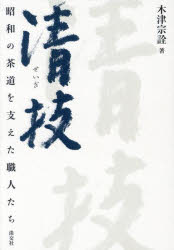 木津宗詮 著
清技
清技
せいぎ
昭和の茶道を支えた職人たち
淡交社